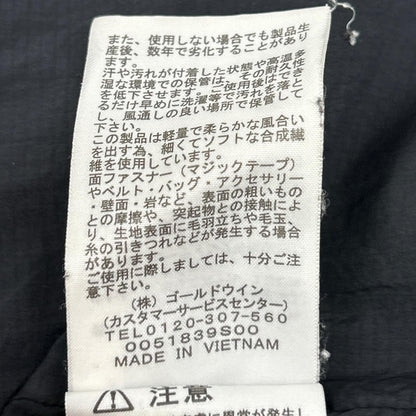 また、使用しない場合でも製品生
産後、数年で劣化することがあり
ます。
汗や汚れが付着した状態や高温多
湿な環境での保管は、その耐久性
を低下させます。ご使用後はでき
るだけ早めに洗濯等で汚れを落と
し、風通しの良い場所で保管して
下さい。
この製品は軽量で柔らかな風合い
を出す為、細くてソフトな合成繊
維を使用しています。
面ファスナー（マジックテープ）
やベルト・バッグ・アクセサリー
・壁面・岩など、表面の粗いもの
との摩擦や、突起物との接触によ
り、生地表面に毛羽立ちや毛玉、
糸の引きつれなどが発生する場合
があります。
ご使用に際しましては、十分ご注
意下さい。
（株）ゴールドウイン
(カスタマーサービスセンター)
TEL0120-307-560
0051839S00
MADE IN VIETNAM
注意